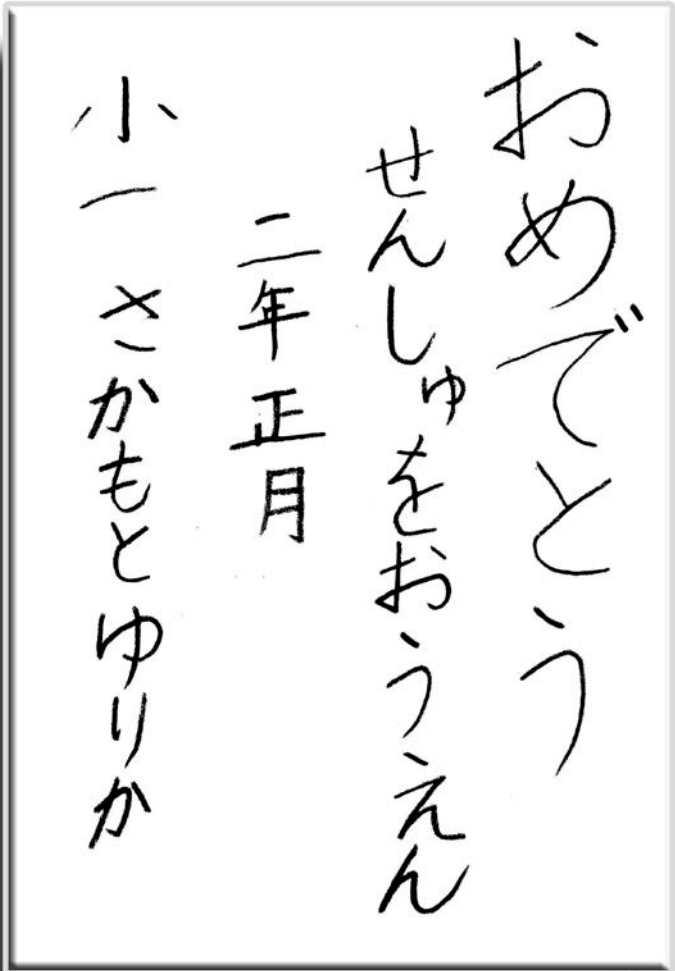 おめでとう
せんしゅをおうえん
二年正月
小一 さかもとゆりか